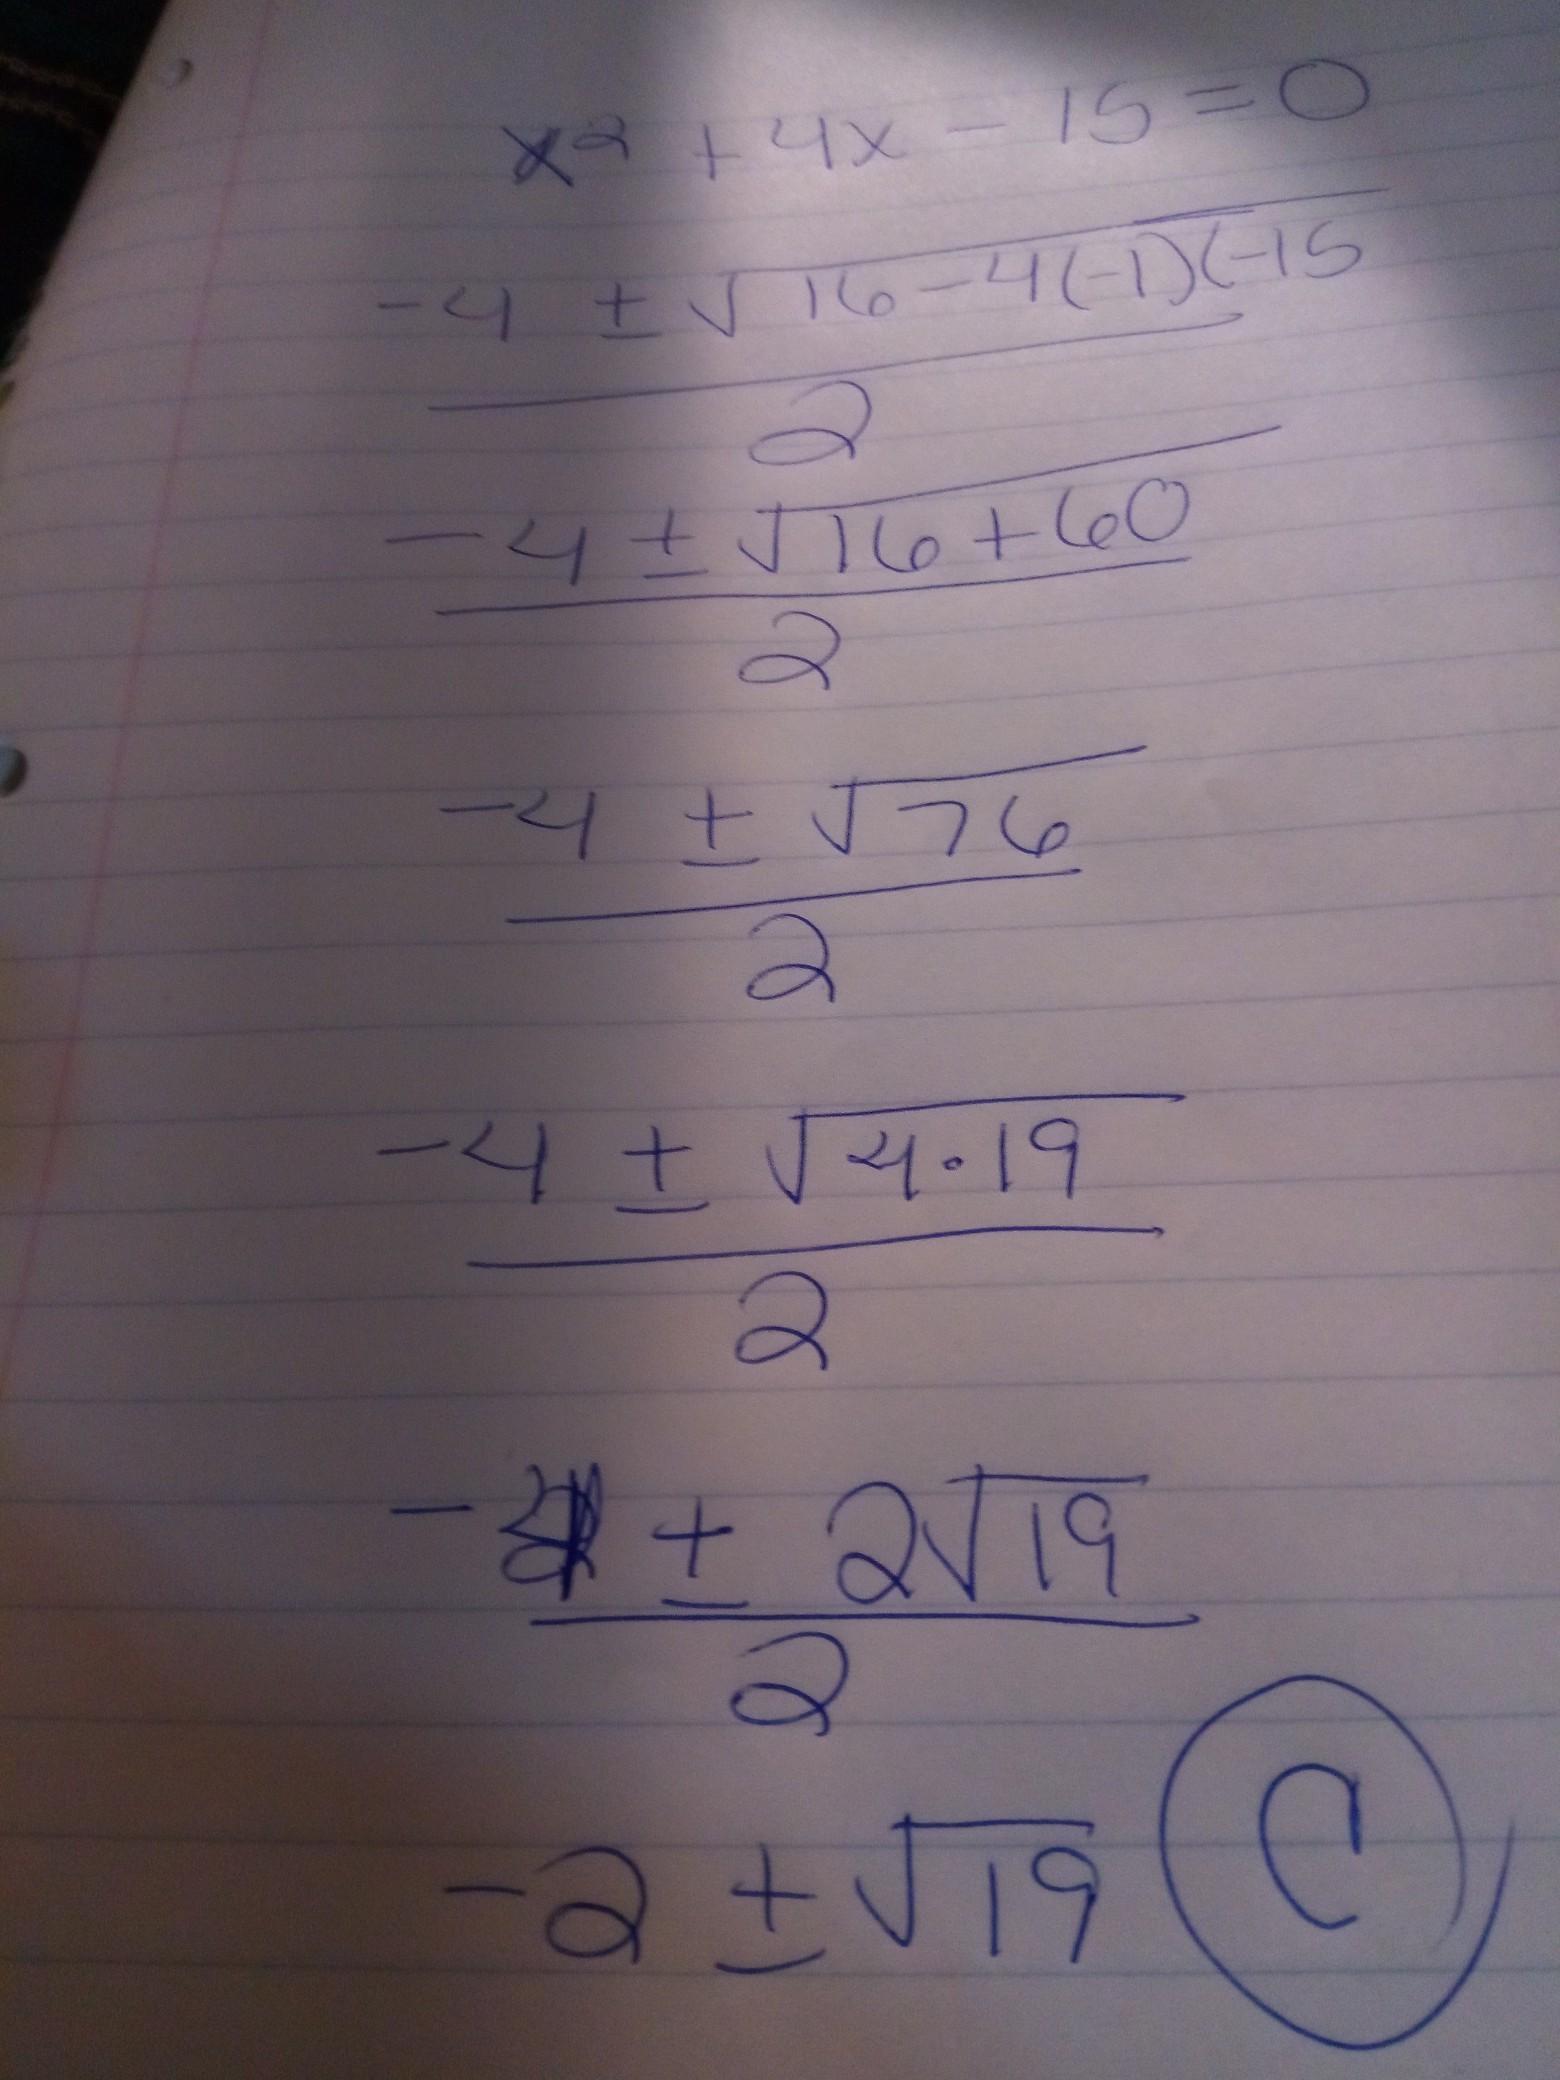 x² + 4x - 15 = 0
-4 ± √16 - 4(-1)(-15
2
-4 ± √16 + 60
2
-4 ± √76
2
-4 ± √4·19
2
- ± 2√19
2
-2 ± √19 C